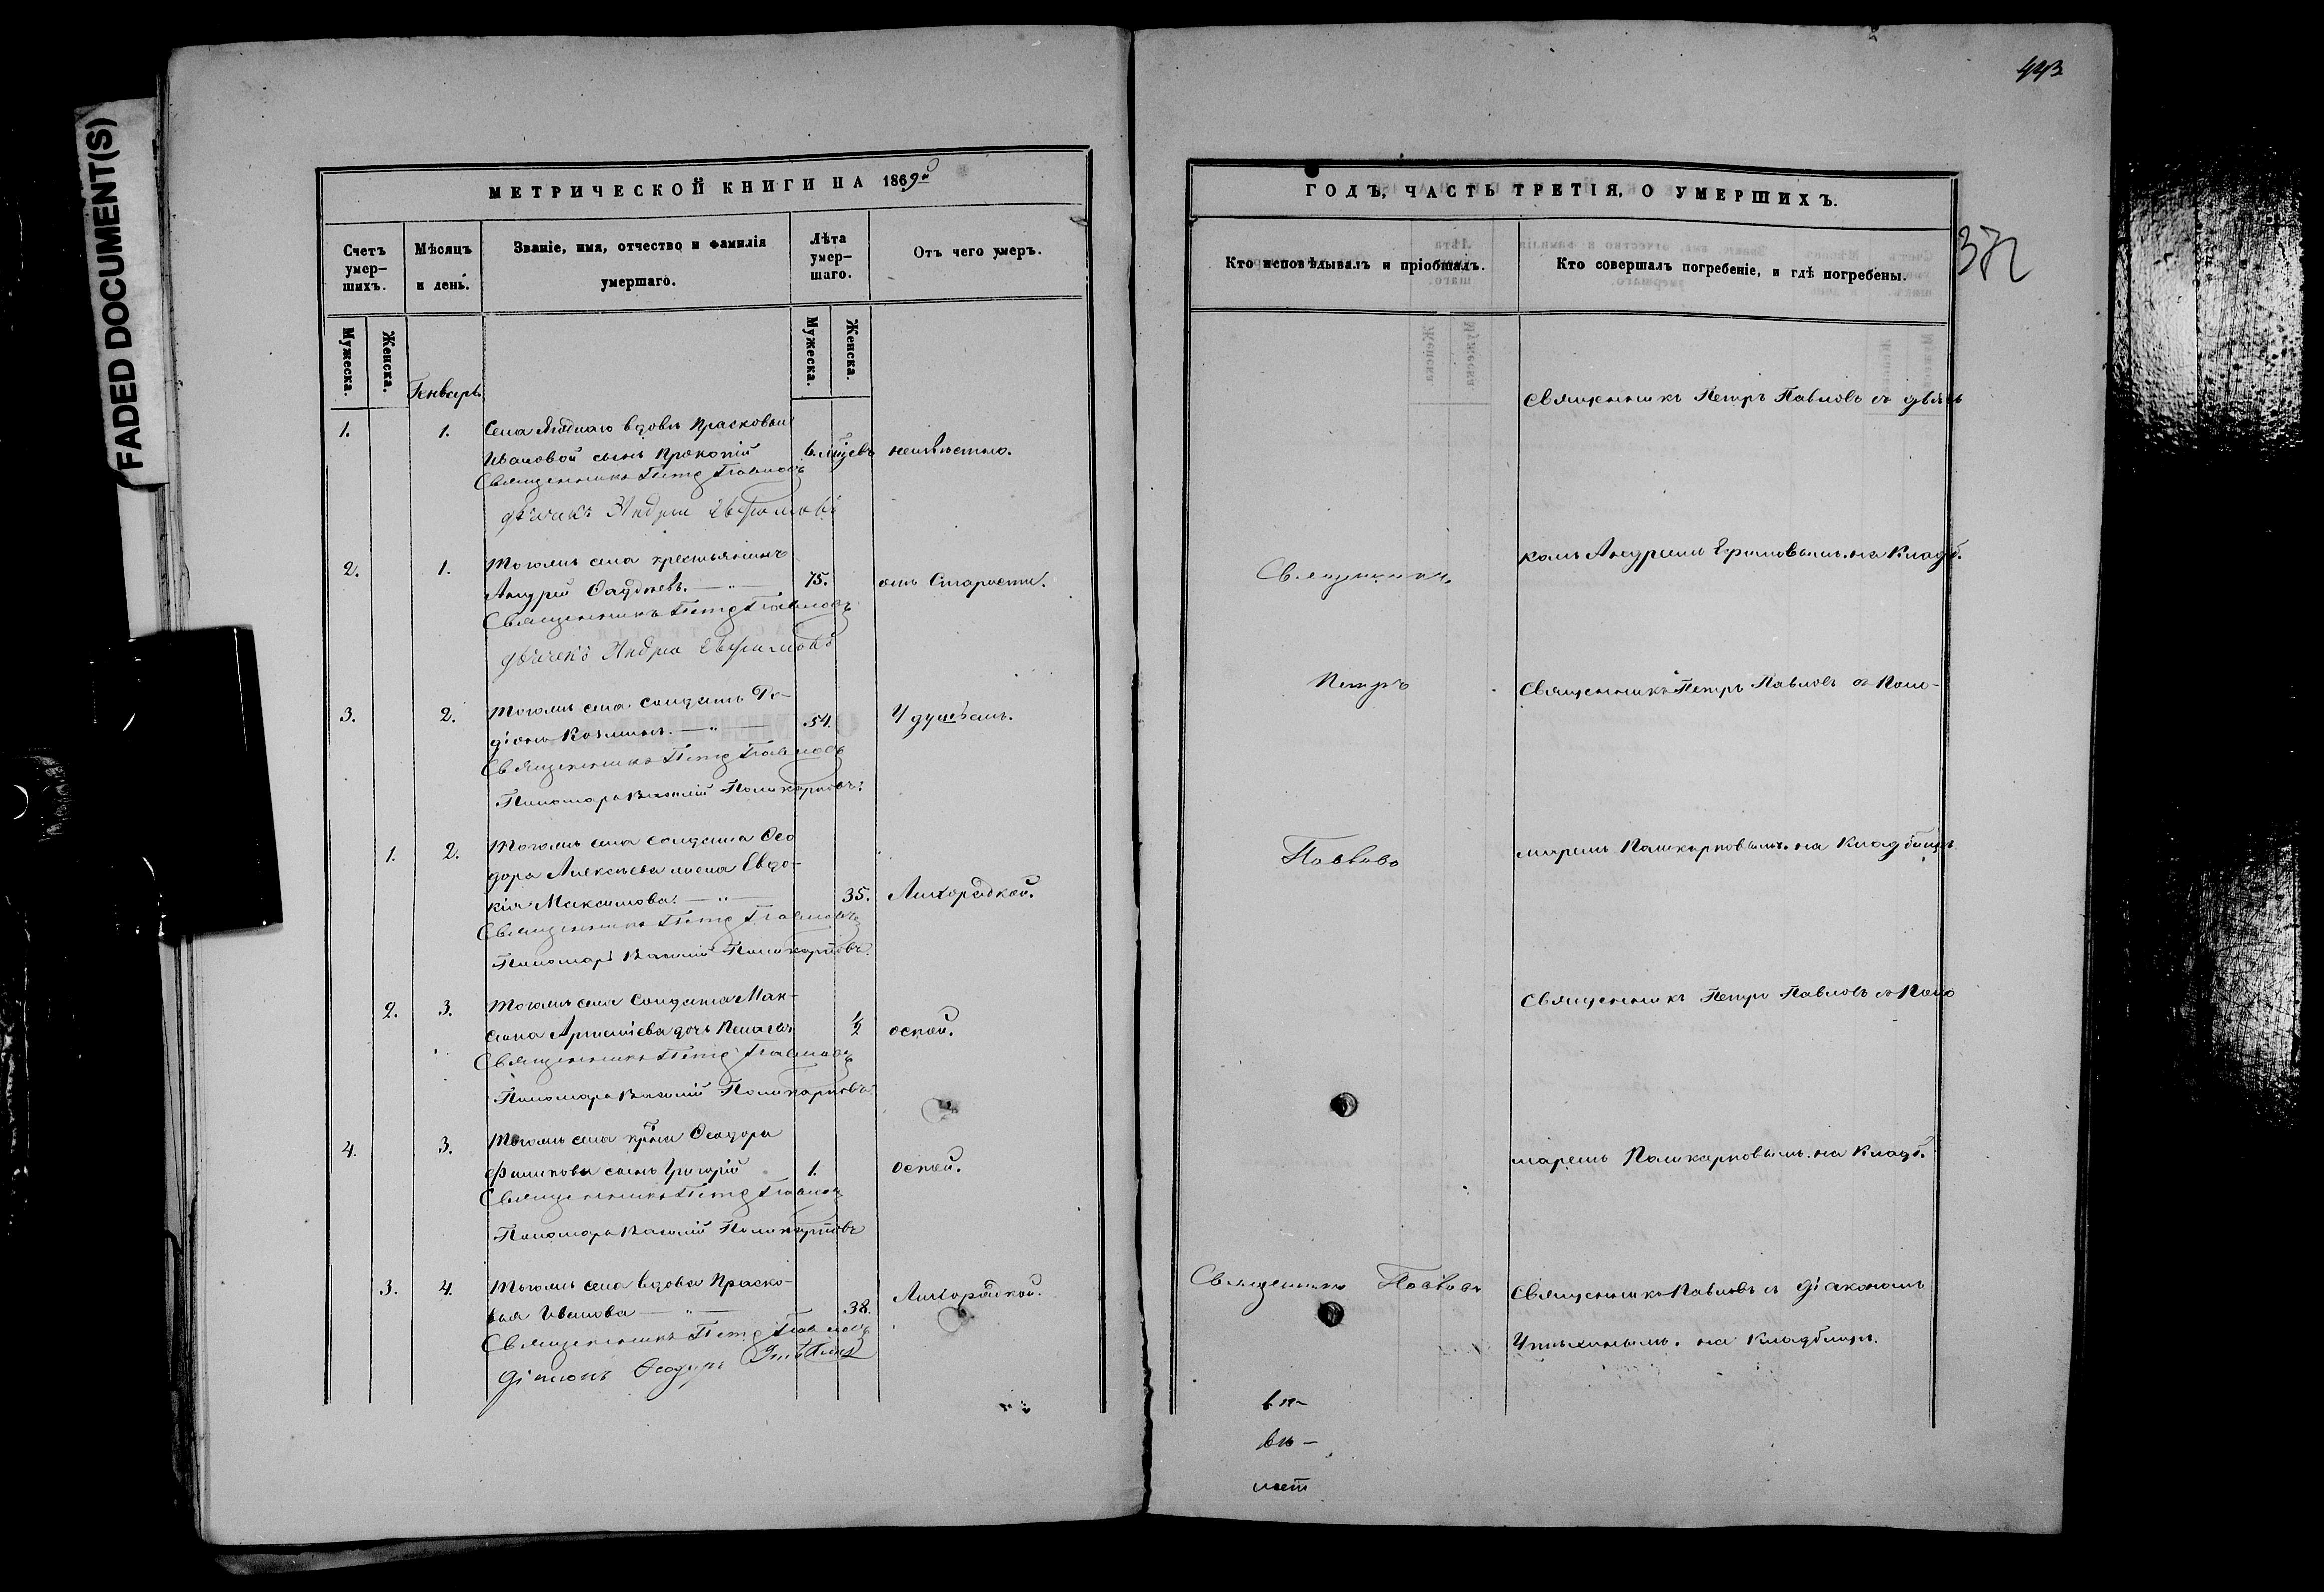 FADED DOCUMENT(S)
МЕТРИЧЕСКОЙ КНИГИ НА 1869й
Счетъ умер-шихъ.
Мѣсяцъ и день.
Званіе, имя, отчество и фамилія умершаго.
Лѣта умер-шаго.
Отъ чего умеръ.
Мужеска.
Женска.
Мужеска.
Женска.
Генварь
1. 1. Села вдовы Прасковьи
Ивановой сынъ Прокопій неизвѣстно.
Священникъ Петр Павловъ
дьячекъ Андрей
2. 1. Тогожъ села крестьянинъ
Андрей 75. отъ Старости.
Священникъ Петр Павловъ
дьячекъ Андрей
3. 2. Тогожъ села солдатъ Ро-
діонъ Козминъ. — „ — 54. Удушьемъ.
Священникъ Петр Павловъ
Пономарь Василій Поликарповъ.
1. 2. Тогожъ села солдата Ѳео
дора Алексѣева жена Евдо-
кія Максимова. — „ — 35. Лихорадкой.
Священникъ Петр Павловъ
Пономарь Василій Поликарповъ.
2. 3. Тогожъ села Солдата Мак-
сима Артемiева дочь Пелагія 1/2 оспой.
Священникъ Петр Павловъ
Пономарь Василій Поликарповъ.
4. 3. Тогожъ села Ѳеодора
Филипова сынъ Григорій 1. Оспой.
Священникъ Петр Павловъ
Пономарь Василій Поликарповъ
3. 4. Тогожъ села вдова Праско-
вья Иванова — „ — 38. Лихорадкой.
Священникъ Петр Павловъ
Діаконъ Ѳеодоръ
443
ГОДЪ, ЧАСТЬ ТРЕТІЯ, О УМЕРШИХЪ.
372
Кто исповѣдывалъ и пріобщалъ.
Кто совершалъ погребеніе, и гдѣ погребены.
Священникъ Петръ Павловъ съ дьяч
комъ Андреемъ Ефимовымъ. на Кладб.
Священникъ
Петръ
Священникъ Петръ Павловъ съ Поно-
Павловъ
маремъ Поликарповымъ. на Кладбищѣ
Священникъ Петръ Павловъ съ Поно
маремъ Поликарповымъ. на Кладб.
Священникъ Павловъ
Священникъ Павловъ съ діакономъ
на Кладбищѣ.